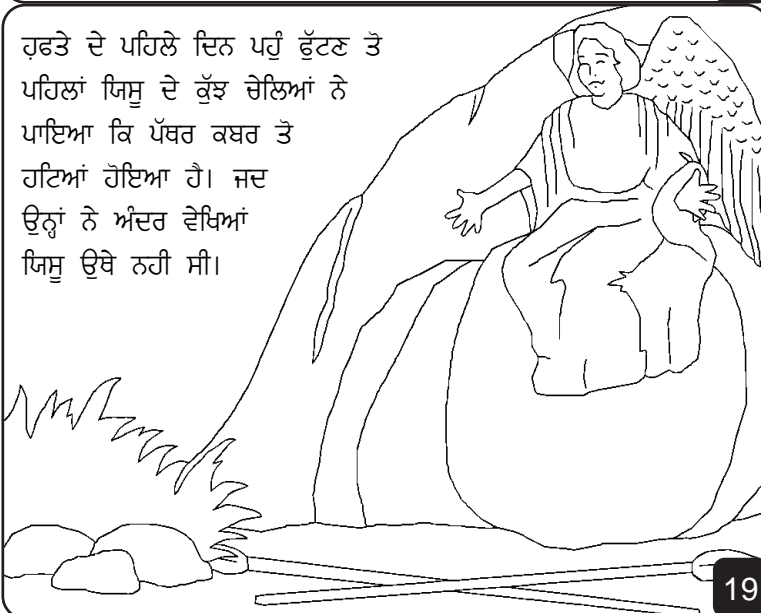 ਹਫਤੇ ਦੇ ਪਹਿਲੇ ਦਿਨ ਪਹੁੰ ਫੁੱਟਣ ਤੋ
ਪਹਿਲਾਂ ਯਿਸੂ ਦੇ ਕੁੱਝ ਚੇਲਿਆਂ ਨੇ
ਪਾਇਆ ਕਿ ਪੱਥਰ ਕਬਰ ਤੋ
ਹਟਿਆਂ ਹੋਇਆ ਹੈ। ਜਦ
ਉਨ੍ਹਾਂ ਨੇ ਅੰਦਰ ਵੇਖਿਆਂ
ਯਿਸੂ ਉਥੇ ਨਹੀ ਸੀ।
19